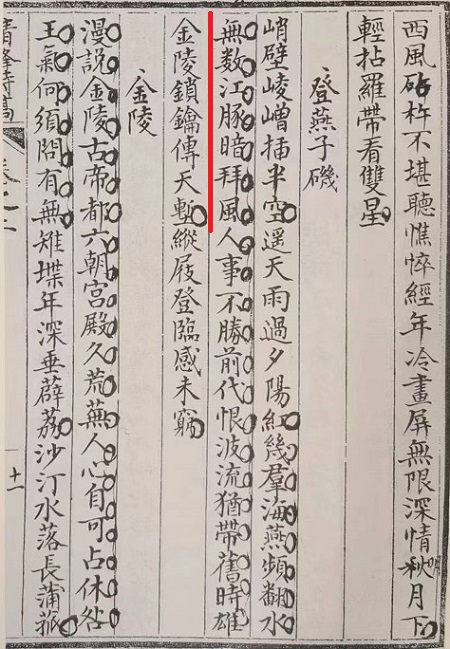 西風砧杵不堪聽憔悴經年冷畫屏無限深情秋月下
輕拈羅帶看雙星
登燕子磯
峭壁崚嶒插半空遥天雨過夕陽紅幾羣海燕頻翻水
無数江豚暗拜風人事不勝前代恨波流猶帶舊時雄
金陵鎖鑰傳天塹縱屐登臨感未窮
金陵
漫說金陵古帝都六朝宮殿久荒蕪人心自可占休咎
王氣何須問有無雉堞年深垂薜荔沙汀水落長蒲菰
十一